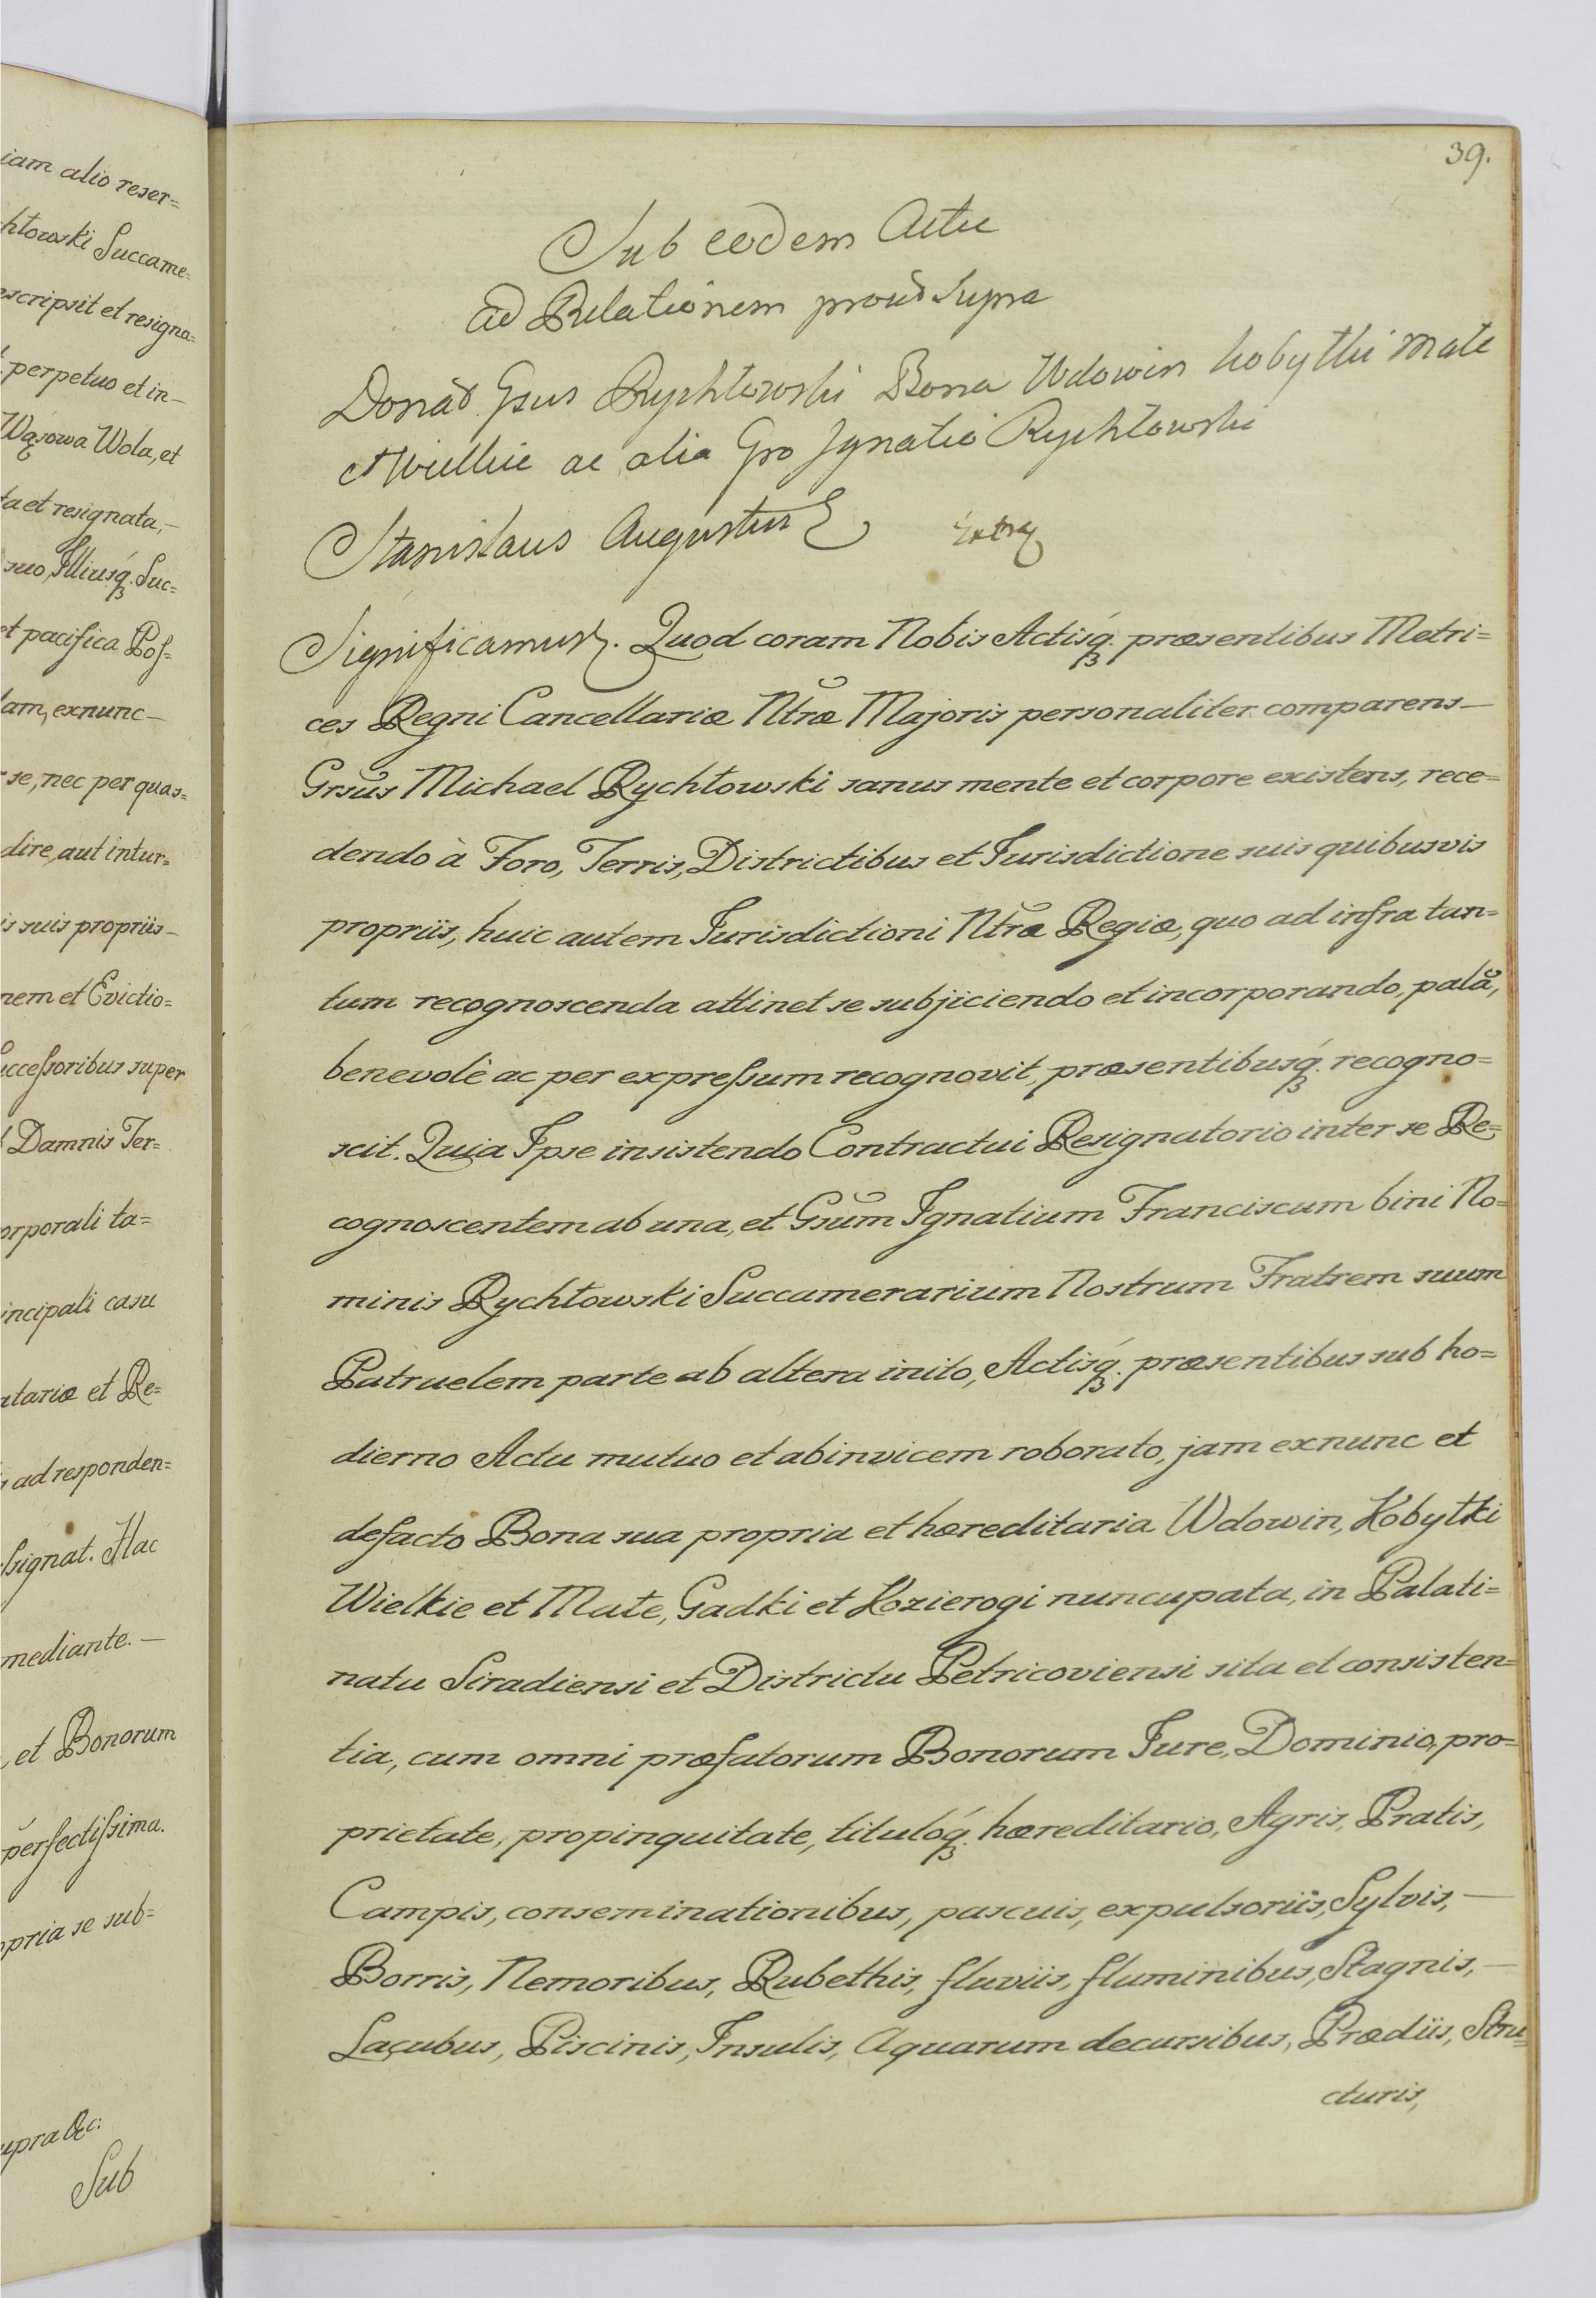 iam alio reser=
chłowski Succame=
escripsit et resigna=
perpetuo et in—
Wąsowa Wola, et
ta et resignata,—
suo, Illiusq́. Suc=
et pacifica Pos=
dam, exnunc—
se, nec per quas=
dire, aut intur=
is suis propriis—
nem et Evictio=
uccessoribus super
Damnis Ter=
orporali ta=
incipali casu
atariæ et Re=
ad responden=
signat. Hac
mediante.—
, et Bonorum
perfectissima.
opria se sub=
upra &c:
Sub
39.
Sub eodem Actu
ad Relationem prout Supra
Donat Gsus Rychłowski Bona Wdowin Kobyłki Małe
et Wielkie ac alia Gso Ignatio Rychłowski
Stanislaus Augustus
Extra
Significamus. Quod coram Nobis Actisq́. præsentibus Metri=
ces Regni Cancellariæ Ntræ Majoris personaliter comparens—
Grsus Michael Rychłowski sanus mente et corpore existens, rece=
dendo à Foro, Terris, Districtibus et Jurisdictione suis quibusvis
propriis, huic autem Jurisdictioni Ntræ Regiæ, quo ad infra tan=
tum recognoscenda attinet se subjiciendo et incorporando, pală,
benevolè ac per expressum recognovit, præsentibusq́. recogno=
scit. Quia Ipse insistendo Contractui Resignatorio inter se Re=
cognoscentem ab una, et Gsum Ignatium Franciscum bini No=
minis Rychłowski Succamerarium Nostrum Fratrem suum
Patruelem parte ab altera inito, Actisq́. præsentibus sub ho=
dierno Actu mutuo et abinvicem roborato, jam exnunc et
defacto Bona sua propria et hæreditaria Wdowin, Kobyłki
Wielkie et Małe, Gadki et Kozierogi nuncupata, in Palati=
natu Siradiensi et Districtu Petricoviensi sita et consisten=
tia, cum omni præfatorum Bonorum Jure, Dominio, pro=
prietate, propinquitate, tituloq́. hæreditario, Agris, Pratis,
Campis, conseminationibus, pascuis, expulsoriis, Sylvis,—
Borris, Nemoribus, Rubethis, fluviis, fluminibus, Stagnis,—
Lacubus, Piscinis, Insulis, Aquarum decursibus, Prædiis, Stru=
cturis,